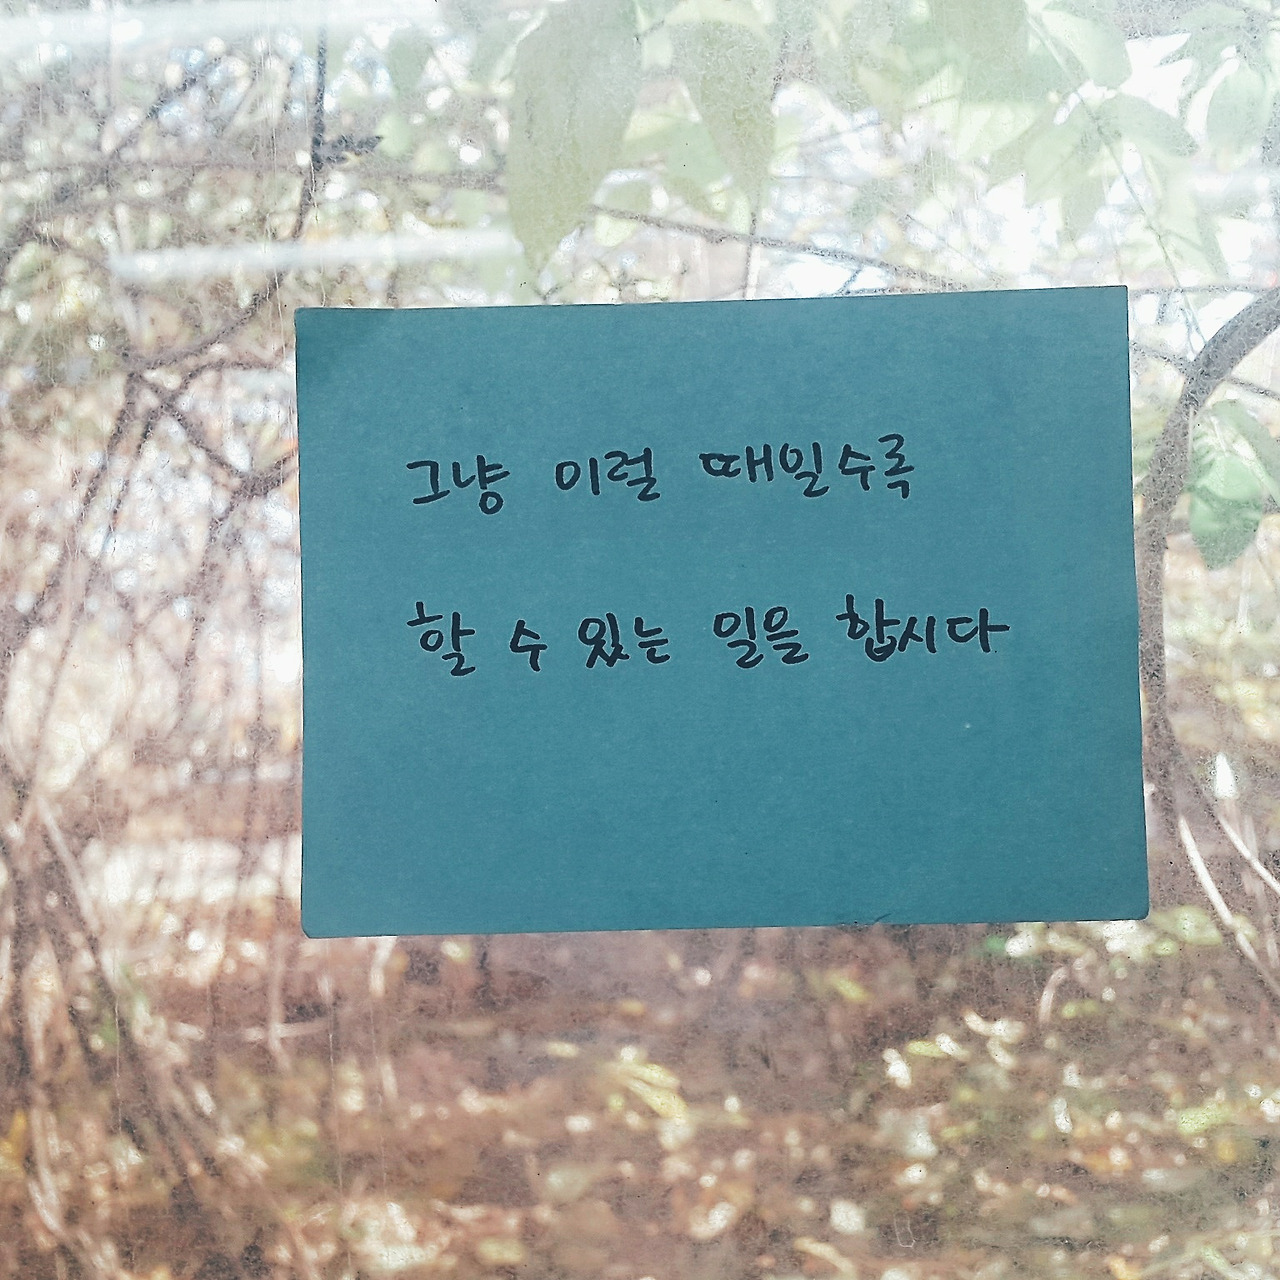 그냥 이럴 때일수록
할 수 있는 일을 합시다